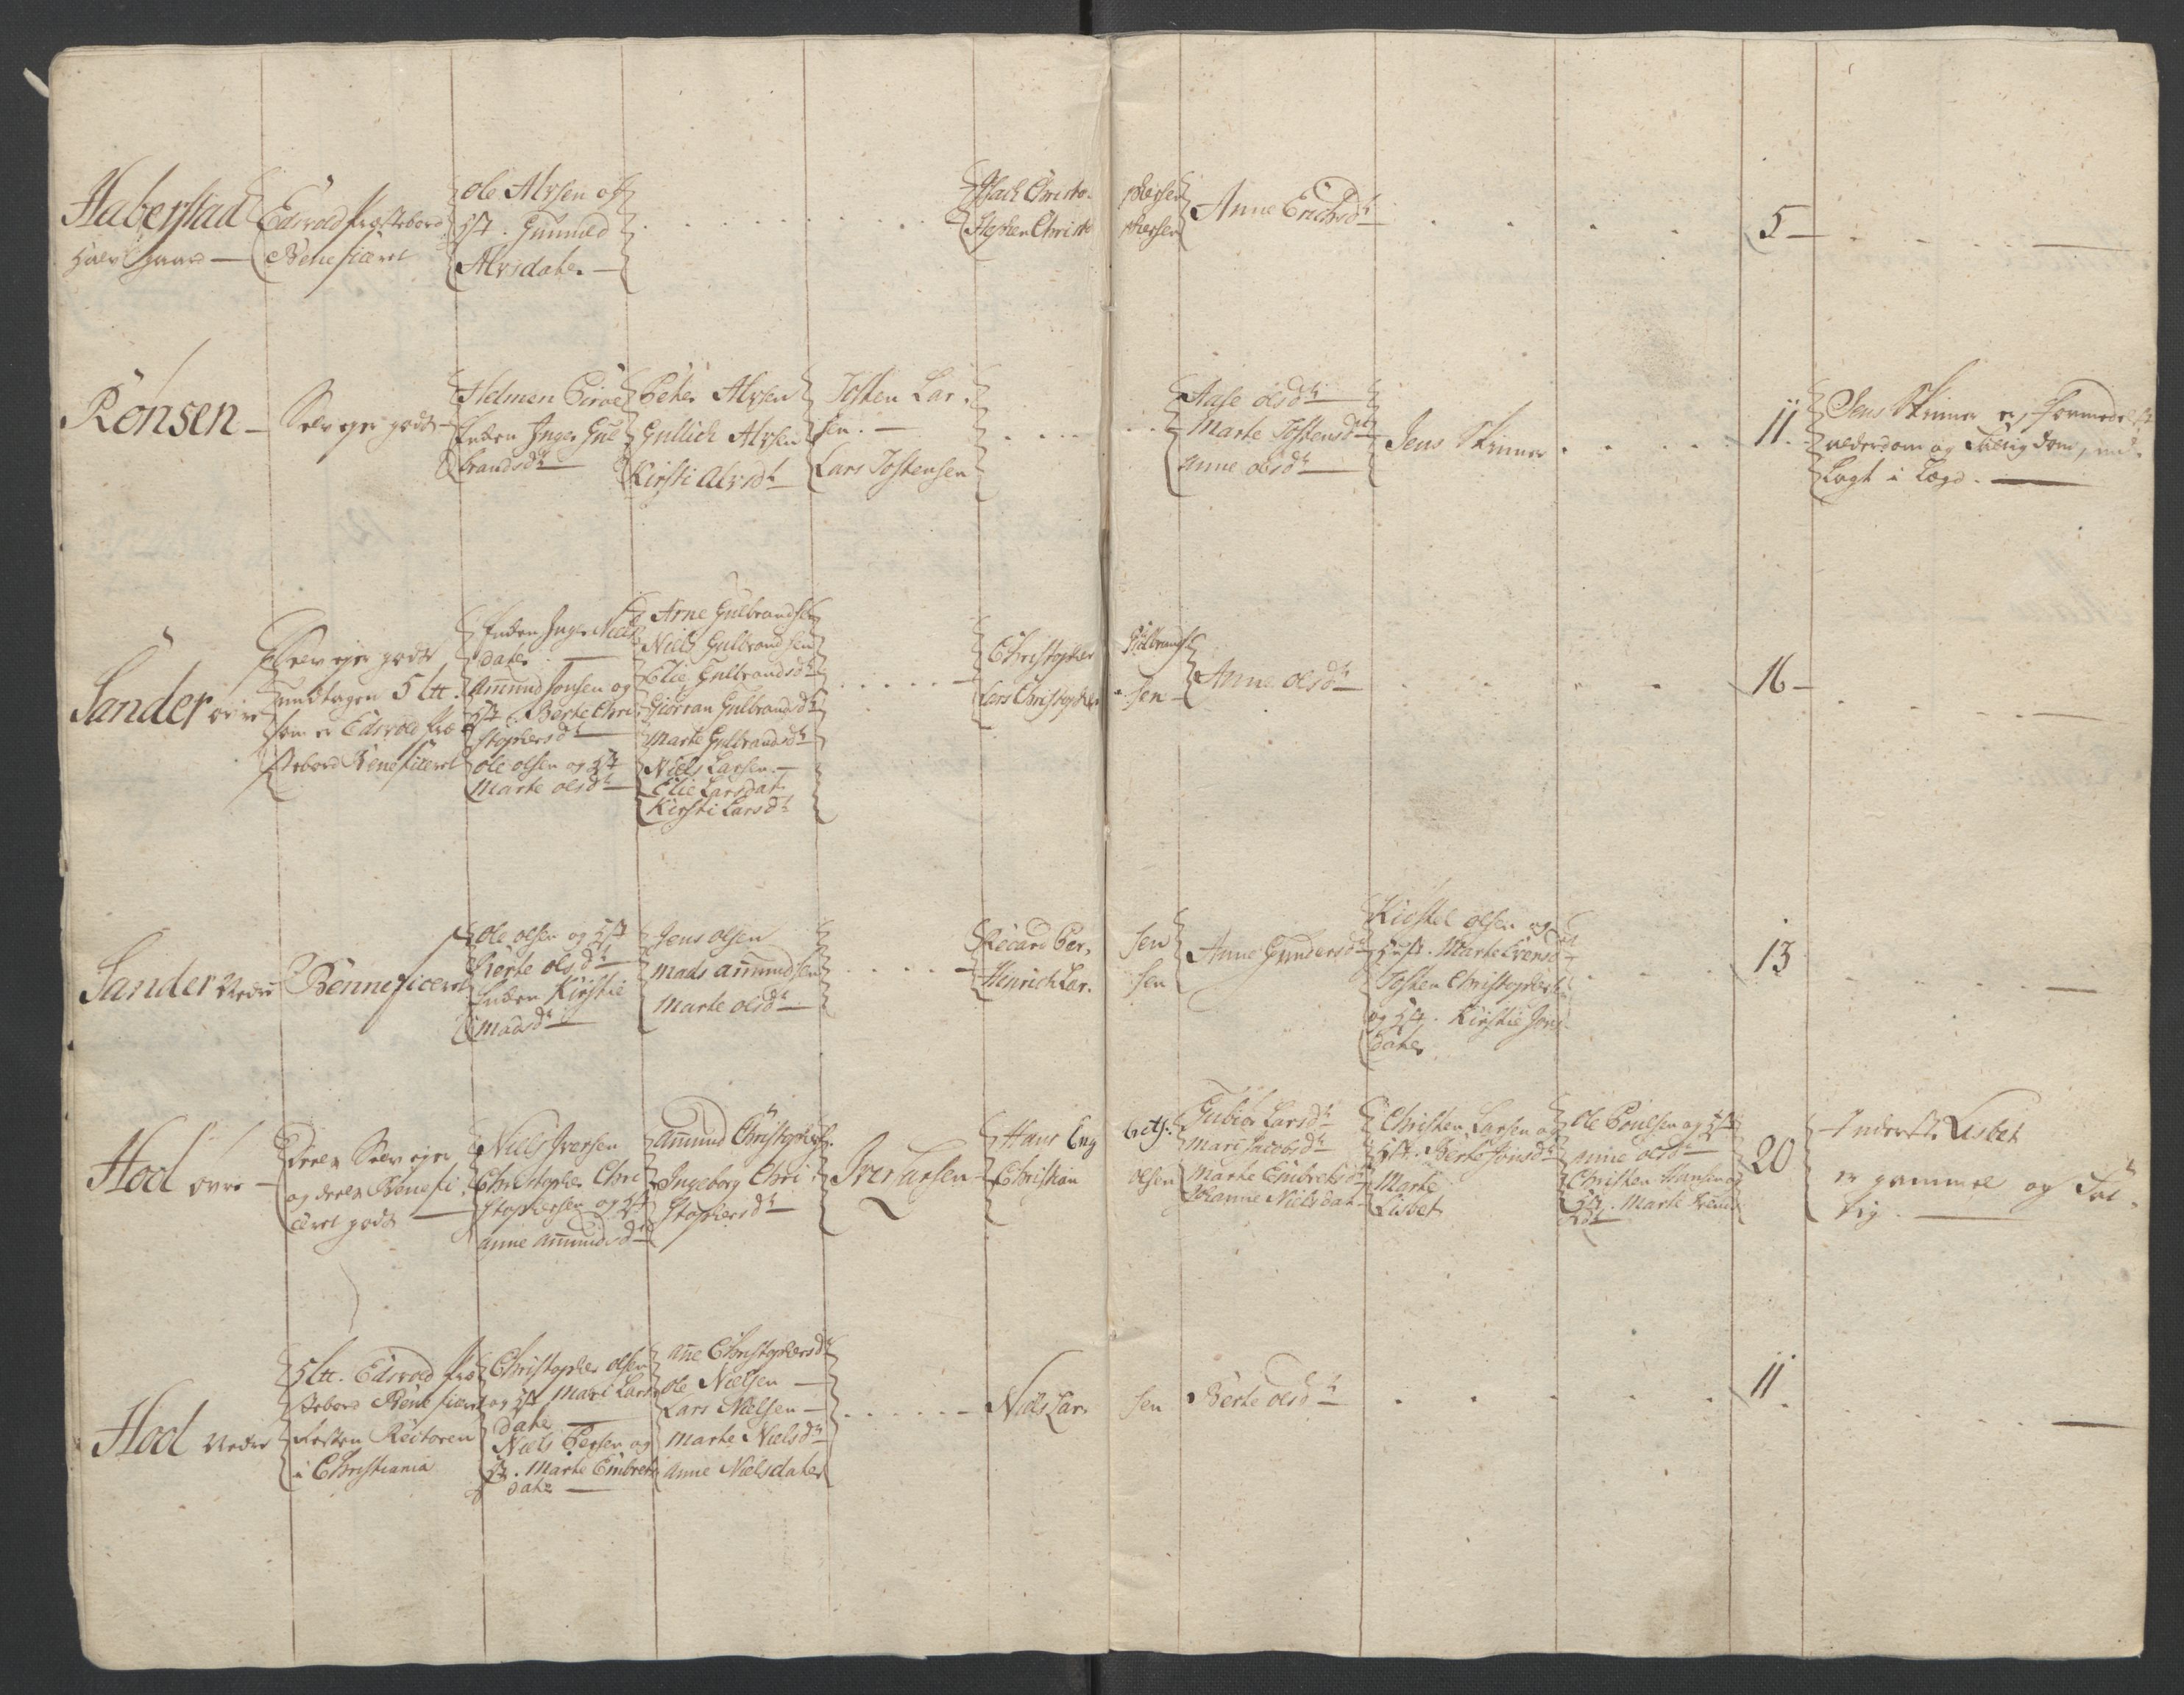 Haberstad
halv gaard —
Edsvold Præstebord
Beneficeret
Ole Alvsen og
hst. Gunnild
Alvsdater —
Isach Christo-
phersen
Stephen Christo
phersen
Anne Erichsdt
5 —
Rønsen —
Selv ejer gods
Helmen
Enken Inger Gul
brandsdt
Peter Alvsen
Gullich Alvsen
Kirsti Alvsdt
Josten Lar-
sen. —
Lars Jostensen
Aase olsdt
Marte Jostensdt
Anne olsdt
Jens Skinner
11.
Jens Skinner er, formedelst
alderdom og , ind-
Lagt i Lægd. —
Sander øvre
Selv ejer gods
undtagen 5 Ltt.
som er Edsvold Præ
stebord Beneficeret
Enken Inger Niels
dater —
Amund Jonsen og
hst. Berte Chri
stophersdt
Ole olsen og hst
Marte olsdt
Arne Gulbrandsen
Niels Gulbrandsen
Elie Gulbrandsdt
Giørran Gulbrandsdt
Marte Gulbrandsdt
Niels Larsen. —
Elie Larsdat.
Kirsti Larsdt
Christopher Gulbrands.
Lars Christopher-
sen
Anne olsdt
16 —
Sander Nedre
Benneficeret
Ole olsen og hst
Berte olsdt
Enken Kirstie
Madsdt
Jens olsen
Mads Amundsen
Marte olsdt
Ricard Per-
sen
Henrich Lar-
sen
Anne Gundersdt
Kiøstel olsen og
hust. Marte Evensdt
Josten Christophersen
og hst. Kirstie Jons
dater
13
Hol øvre —
Deels Selv ejer
og deels Benefi-
ceret gods —
Niels Iversen
Christopher Chri
stophersen og hst
Anne Amundsdt
Amund Christophers.
Ingeborg Chri
stophersdt
Iver Larsen
Hans Eng
bretss.
Christian
olsen
Gubiør Larsdt
Mari Jacobsdt
Marte Embretsdt
Johanne Nielsdat
Christen Larsen og
hst. Berte Jonsdt
Marte
Lisbet
Ole Poulsen og hst
Anne olsdt
Christen Hansen og
hst. Marte
20
Inderste Lisbet
er gammel og Fat-
tig. —
Hol Nedre
5 Ltt. Edsvold Præ
stebord Beneficeret
Resten Rectoren
i Christiania
Christopher olsen
og hst Mari Lars
dater
Niels Persen og
hst. Marte Embrets
dater —
Ane Christophersdt
Ole Nielsen —
Lars Nielsen —
Marte Nielsdt
Anne Nielsdater
Niels Lar-
sen
Berte olsdt
11.